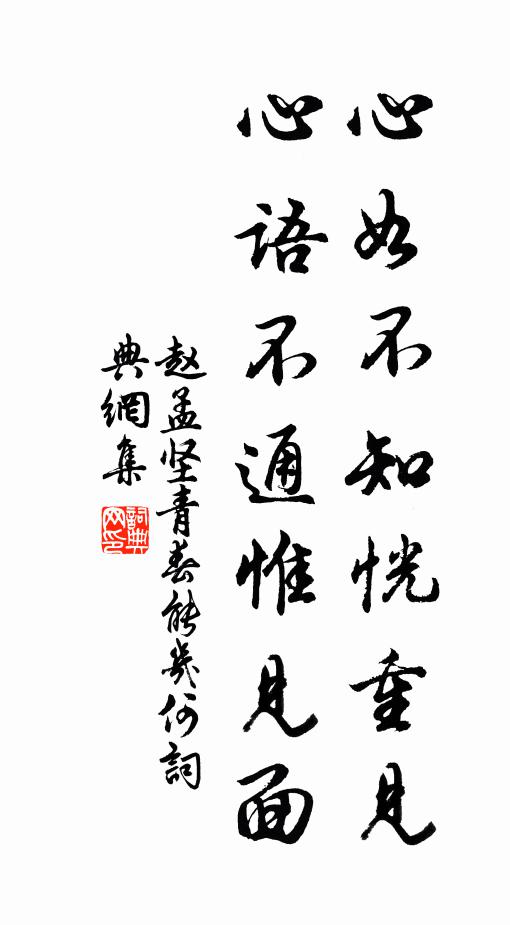 心如不知恍重見
心語不通惟見面
赵孟坚青春能幾何詞
典網集
詞典網印